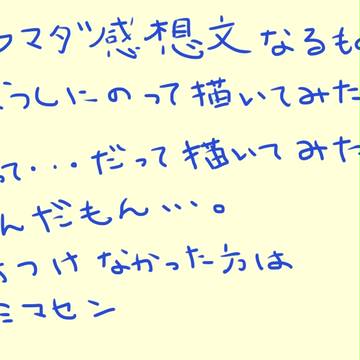 マダツ感想文なるも
うしにのって描いてみた
って・・・だって描いてみた
んだもん・・・。
つけなかった方は
ミマセン